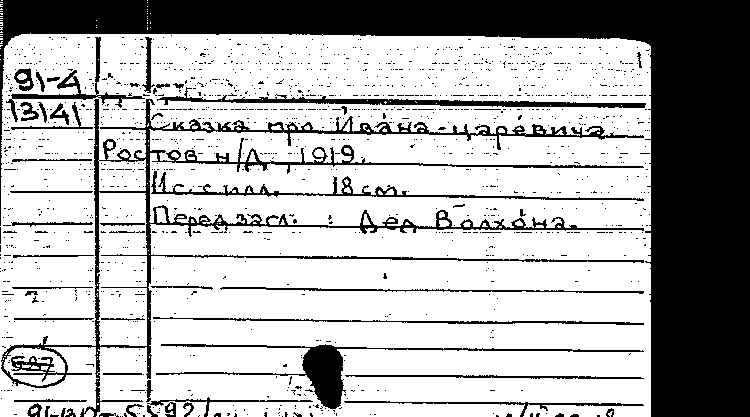 91-4
13141
Сказка про Ивана-царевича.
Ростов н/Д, 1919.
с илл. 18 см.
Перед загл.: Дед Волхона.
587